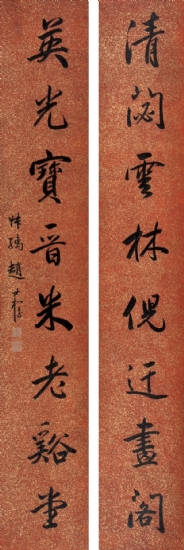 清閟雲林倪迂畫閣
英光寶晉米老谿堂
趙